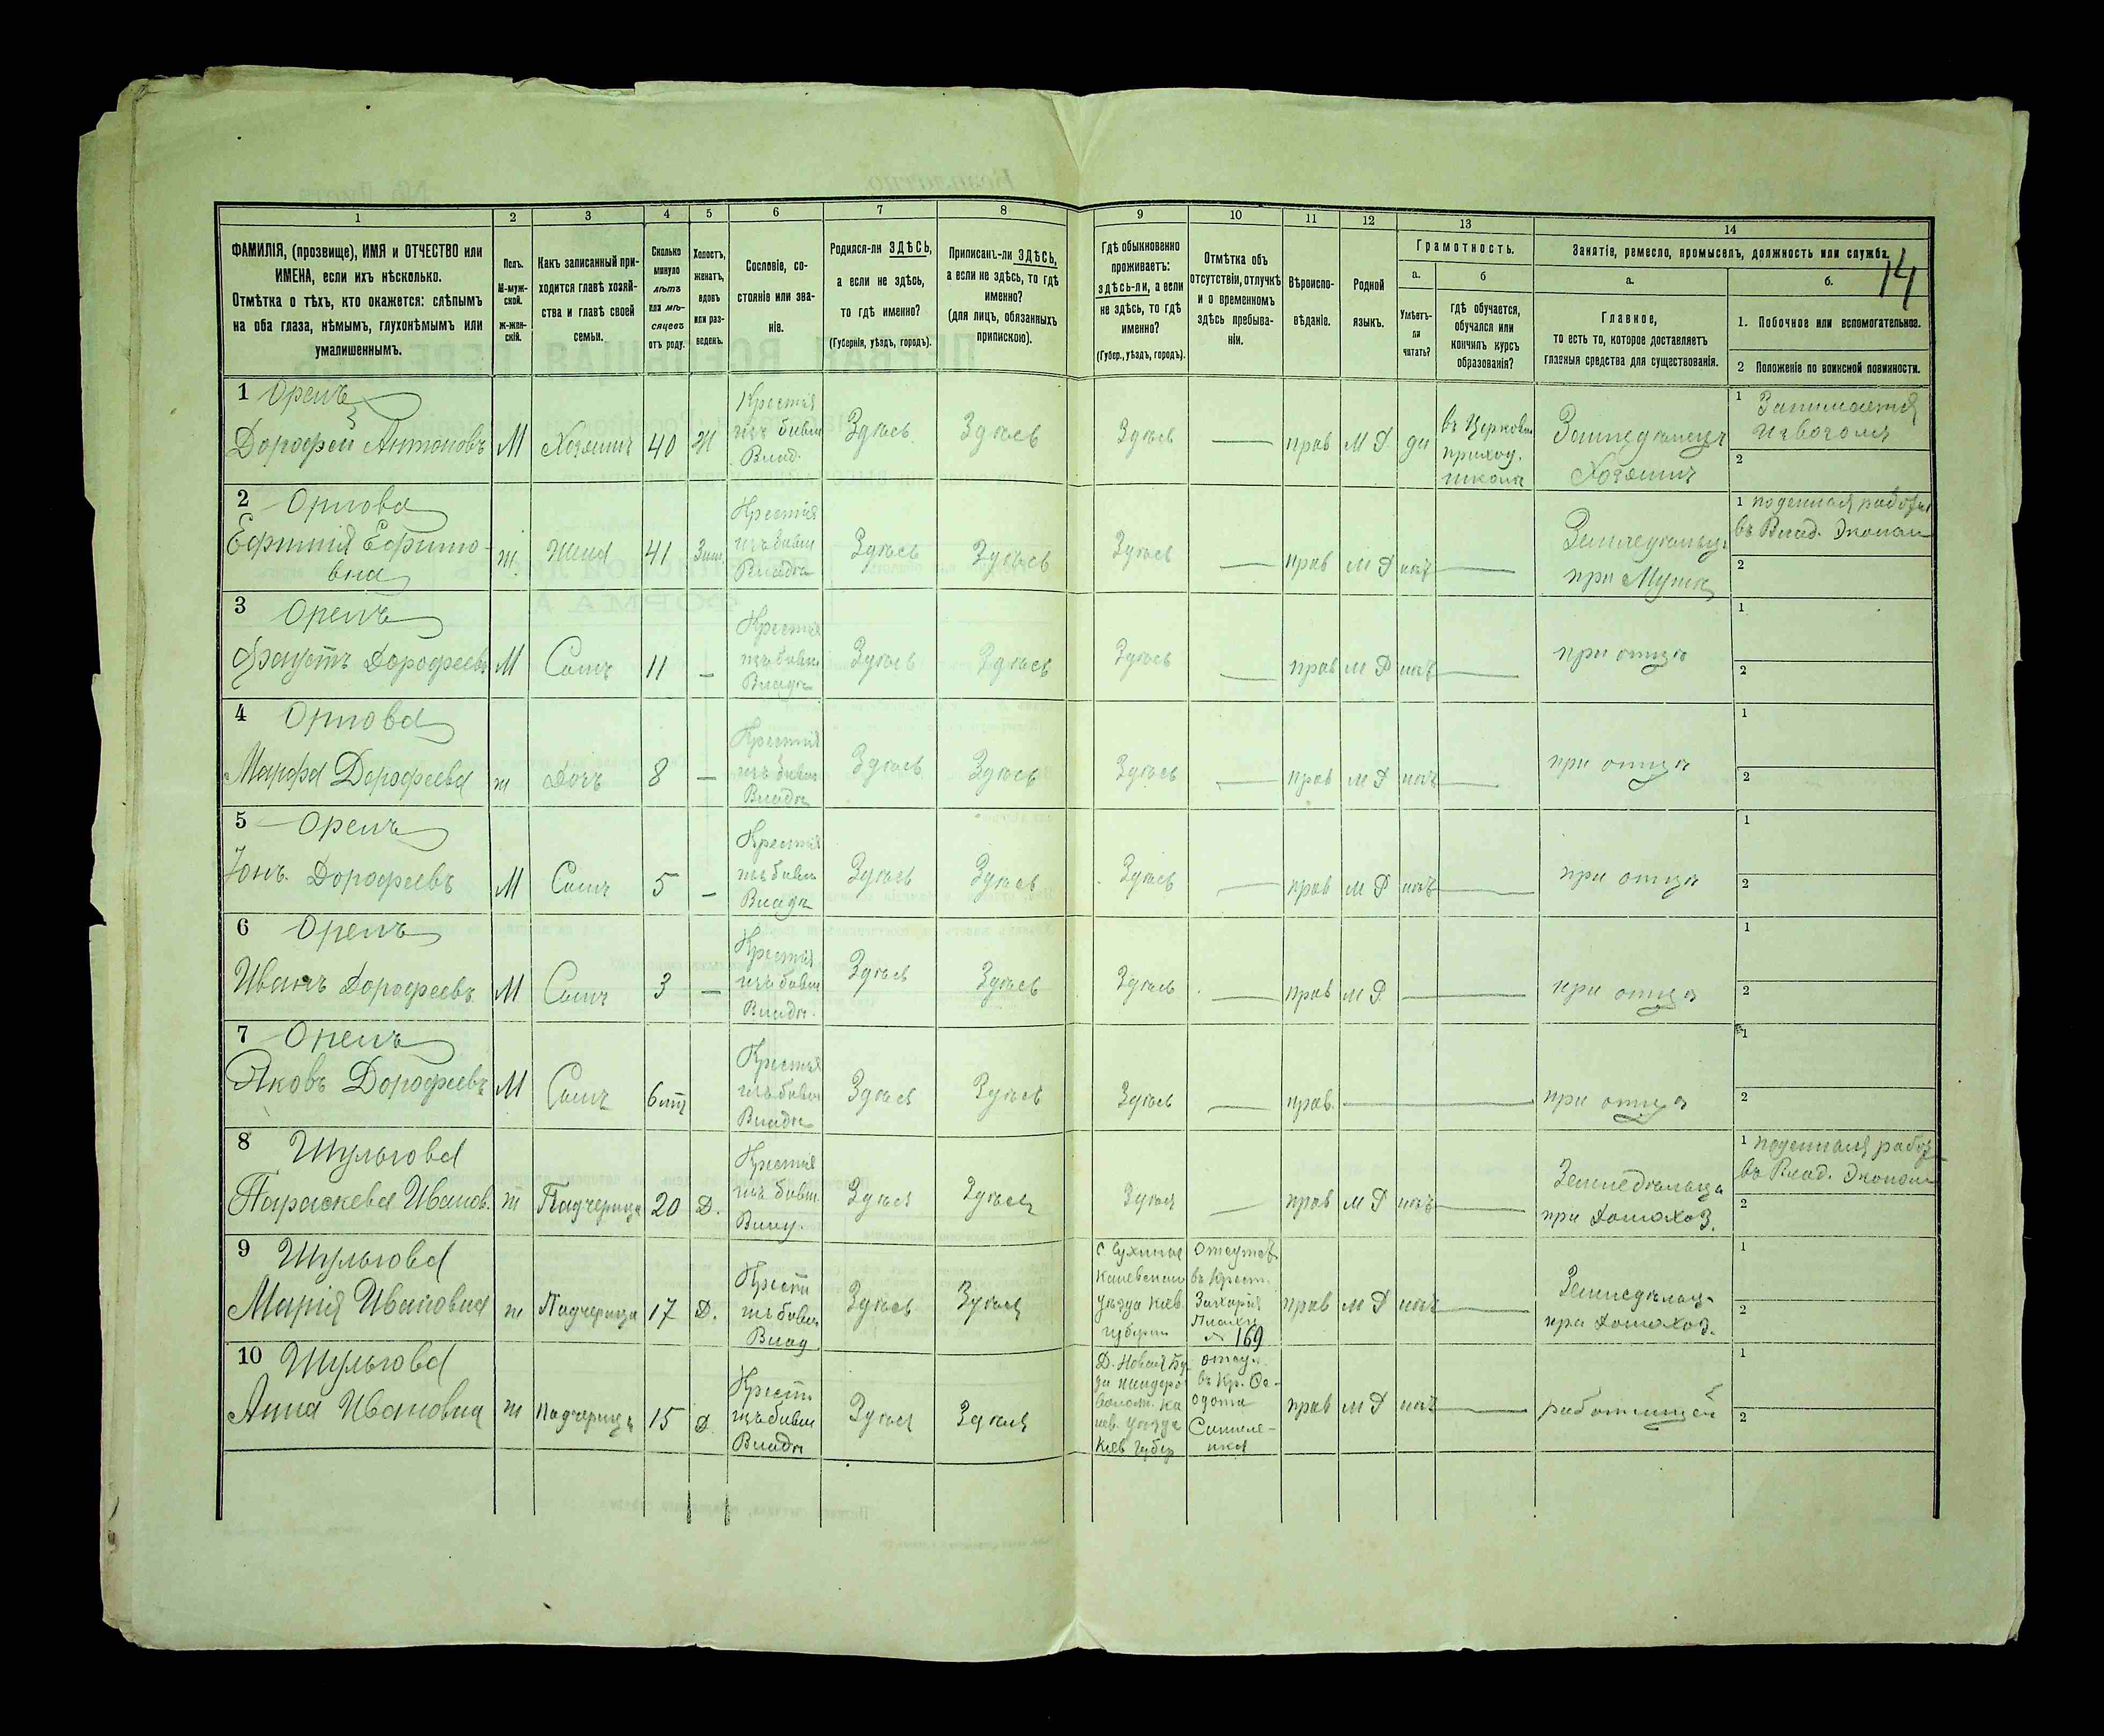 1 2 3 4 5 6 7 8 9 10 11 12 13 14
ФАМИЛІЯ, (прозвище), ИМЯ и ОТЧЕСТВО или
ИМЕНА, если ихъ нѣсколько.
Отмѣтка о тѣхъ, кто окажется: слѣпымъ
на оба глаза, нѣмымъ, глухонѣмымъ или
умалишеннымъ.
Полъ.
М-муж-
ской.
Ж-жен-
скій.
Какъ записанный при-
ходится главѣ хозяй-
ства и главѣ своей
семьи.
Сколько
минуло
лѣтъ
или мѣ-
сяцевъ
отъ роду.
Холостъ,
женатъ,
вдовъ
или раз-
веденъ.
Сословіе, со-
стояніе или зва-
ніе.
Родился-ли ЗДѢСЬ,
а если не здѣсь,
то гдѣ именно?
(Губернія, уѣздъ, городъ).
Приписанъ-ли ЗДѢСЬ,
а если не здѣсь, то гдѣ
именно?
(для лицъ, обязанныхъ
припискою).
Гдѣ обыкновенно
проживаетъ:
здѣсь-ли, а если
не здѣсь, то гдѣ
именно?
(Губер., уѣздъ, городъ).
Отмѣтка объ
отсутствіи, отлучкѣ
и о временномъ
здѣсь пребыва-
ніи.
Вѣроиспо-
вѣданіе.
Родной
языкъ.
Грамотность.
а.
Умѣетъ-
ли
читать?
б
гдѣ обучается,
обучался или
кончилъ курсъ
образованія?
Занятіе, ремесло, промыселъ, должность или служба.
14
а.
Главное,
то есть то, которое доставляетъ
главныя средства для существованія.
б.
1. Побочное или вспомогательное.
2 Положеніе по воинской повинности.
1 Орелъ
Дорофей Антоновъ
М
Хозяинъ
40
Ж
Крестья
изъ бывш
Влад.
Здѣсь
Здѣсь
Здѣсь
—
прав
М Р.
да
въ Церковн
приход.
школѣ
Земледѣлецъ
Хозяинъ
1 Занимается
Извозомъ
2
2 Орлова
Ефимія Ефимо-
вна
ж.
Жена
41
Зам.
Крестья
изъ бывш
Владѣ
Здѣсь
Здѣсь
Здѣсь
—
прав
М Р
нѣтъ
—
Земледѣлец.
при Мужѣ
1 поденная работа
въ Влад. Эконом
2
3 Орелъ
Фаустъ Дорофеевъ
М
Сынъ
11
—
Крестья
изъ бывш
Владѣ
Здѣсь
Здѣсь
Здѣсь
—
прав
М Р
нѣтъ
—
при отцѣ
1
2
4 Орлова
Марфа Дорофеева
ж
Дочь
8
—
Крестья
изъ бывш
Владѣ
Здѣсь
Здѣсь
Здѣсь
—
прав
М Р
нѣтъ
—
при отцѣ
1
2
5 Орелъ
Іонъ Дорофеевъ
М
Сынъ
5
—
Крестья
изъ бывш
Владѣ
Здѣсь
Здѣсь
Здѣсь
—
прав
М Р
нѣтъ
—
при отцѣ
1
2
6 Орелъ
Иванъ Дорофеевъ
М
Сынъ
3
—
Крестья
изъ бывш
Владѣ.
Здѣсь
Здѣсь
Здѣсь
—
прав
М Р.
—
при отцѣ
1
2
7 Орелъ
Яковъ Дорофеевъ
М
Сынъ
6
Крестья
изъ бывш
Владѣ
Здѣсь
Здѣсь
Здѣсь
—
прав.
—
при отцѣ
1
2
8 Шульгова
Параскева Иванов.
ж
Падчерица
20
Д.
Крестья
изъ бывш
Влад.
Здѣсь
Здѣсь
Здѣсь
—
прав
М Р
нѣтъ
—
Земледѣльца
при Домохоз.
1 поденная работ
въ Влад. Эконом
2
9 Шульгова
Марія Ивановна
ж
Падчерица
17
Д.
Крест
изъ бывш
Влад
Здѣсь
Здѣсь
Каневскаго
уѣзда Кіев.
губерн
Отсутств
въ Крест.
Захарія
№ 169
прав
М Р
нѣтъ
—
Земледѣльц.
при Домохоз.
1
2
10 Шульгова
Анна Ивановна
ж
Падчерица
15
Д
Крест.
изъ бывш
Владѣ
Здѣсь
Здѣсь
Д. Новая Бу-
да
волост. Ка
нев. уѣзда
Кіев губер
отсу.
въ Кр. Ѳе-
одота
прав
М Р
нѣтъ
—
работницей
1
2